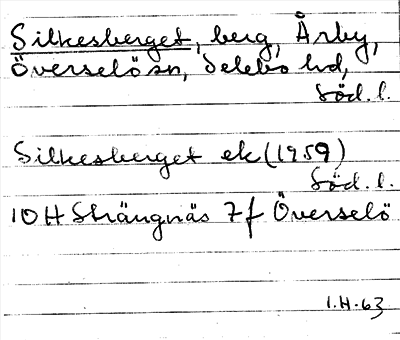 Silkesberget, berg, Årby,
Överselö sn, Selebo hd,
Söd. l.
Silkesberget ek (1959)
Söd. l.
10H Strängnäs 7f Överselö
I.H. 63